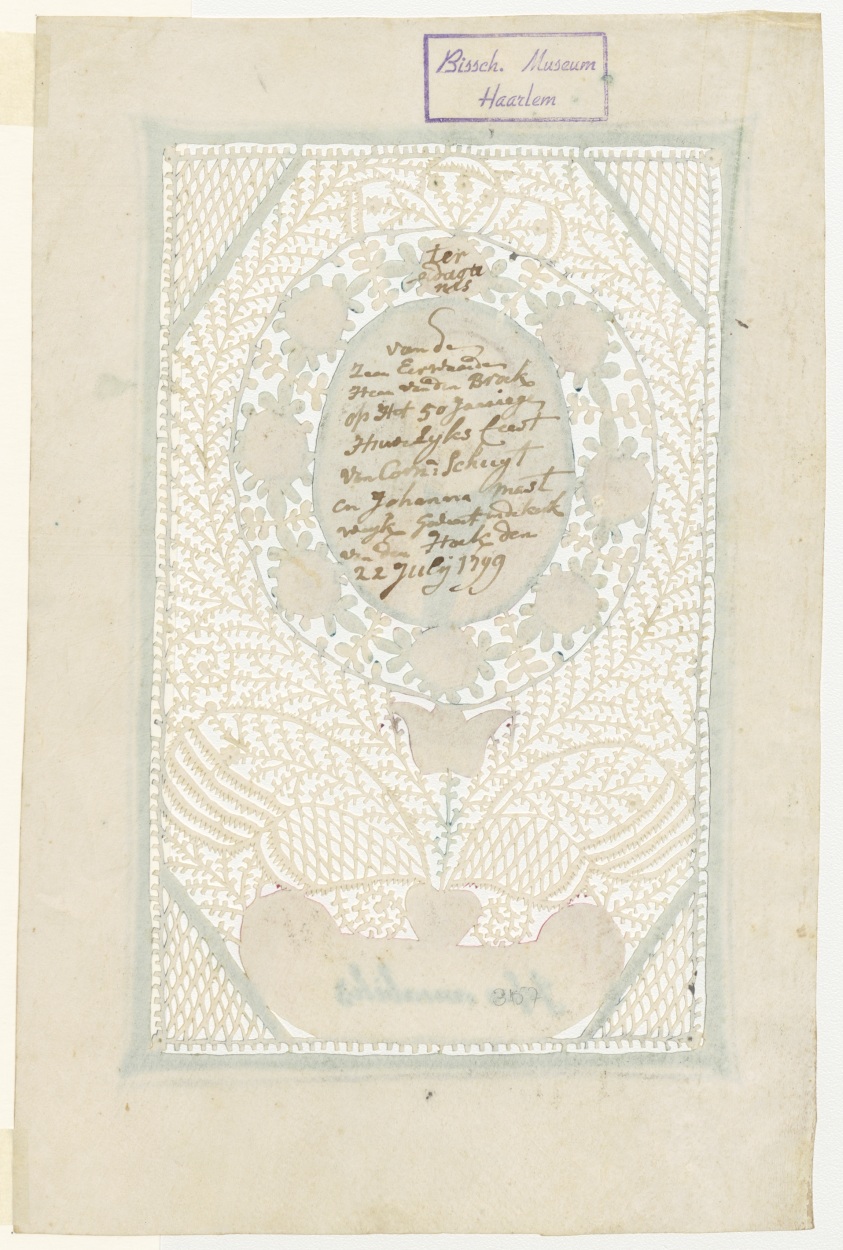 Bissch. Museum
Haarlem
ter
Gedagte
nis
van de
Zeer Eerwaarde
Heer van den Broek
op Het 50 Jaarige
Huwelyks feest
van Corn: Schuyt
en Johanna mast
van den Hoek den
22 Julij 1799
3157